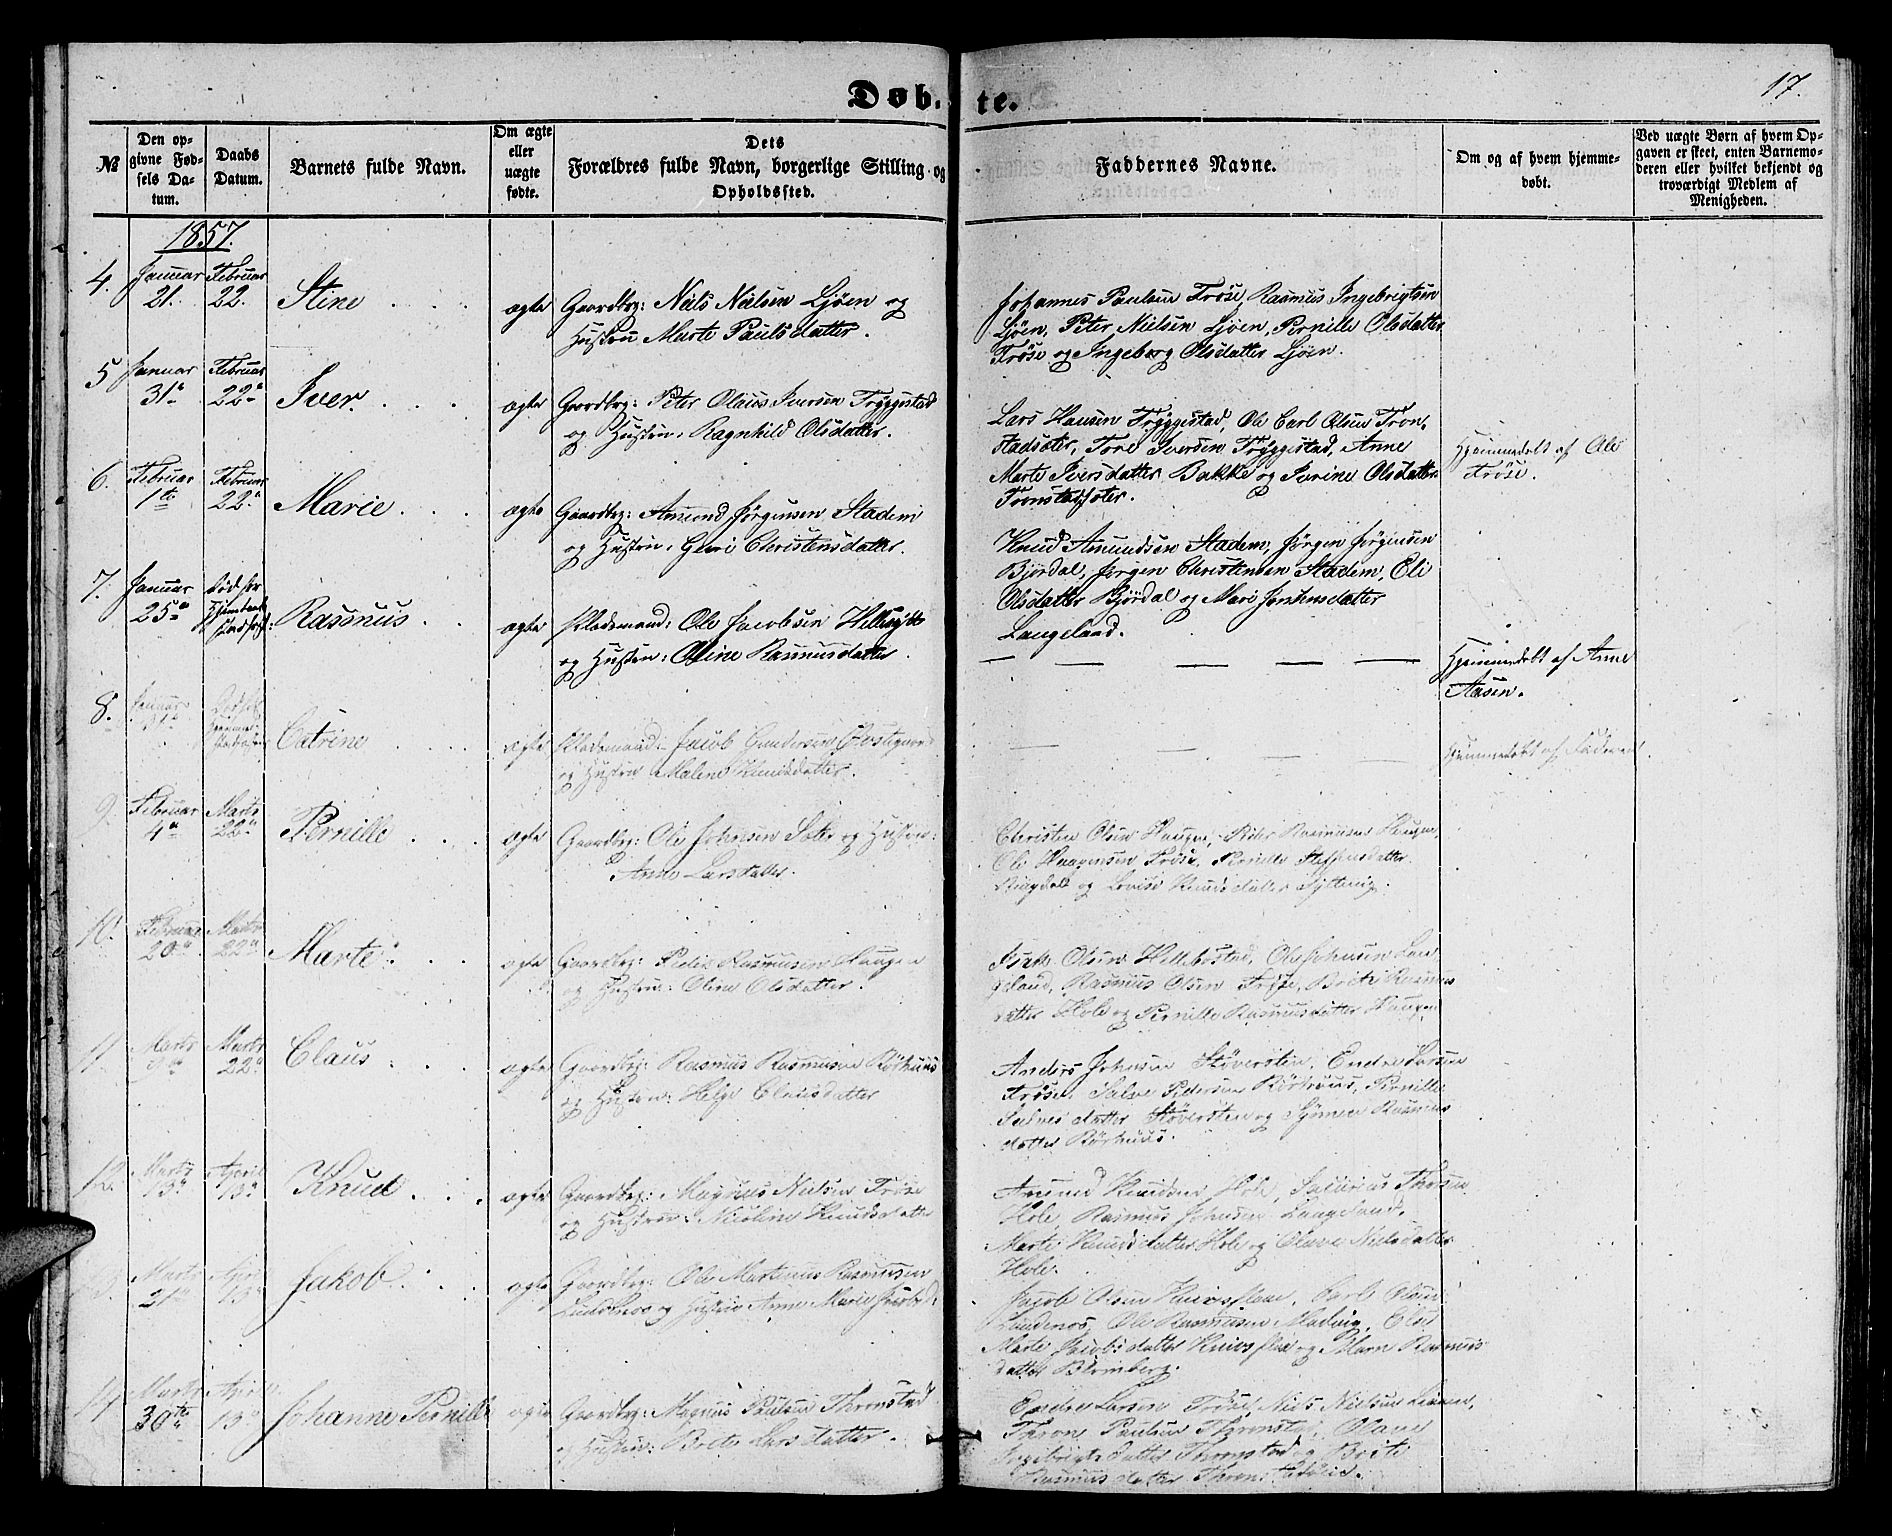 Døb-te.
17.
№
Den opgivne Fødsels Datum.
Daabs Datum.
Barnets fulde Navn.
Om ægte eller uægte fødte.
Dets Forældres fulde Navn, borgerlige Stilling og Opholdssted.
Faddernes Navne.
Om og af hvem hjemmedøbt.
Ved uægte Børn af hvem Opgaven er skeet, enten Barnemoderen eller hvilket bekjendt og troværdigt Medlem af Menigheden.
1857.
4. Januar 21. Februar 22. Stine ægte Gaardbrg: Niels Nielsen Ljøen og
Hustru Marte Paulsdatter.
Johannes Paulsen Trøse, Rasmus Ingebrigtsen
Ljøen, Peter Nielsen Ljøen, Pernille Olsdatter
Trøse og Ingeborg Olsdatter Ljøen.
5 Januar 31te Februar 22de Iver. ægte Gaardbrg: Peter Olaus Iversen Tryggestad
og Hustru: Ragnhild Olsdatter.
Lars Hansen Tryggestad, Ole Carl Olsen Tron-
stadsæter, Tore Iversen Tryggestad, Anne
Marte Iversdatter Bakke og Iverine Olsdatter
Tronstadsæter.
Hjemmedøbt af Ole
Trøse.
6. Februar 1te Februar 22de Marie. ægte Gaardbrg: Amund Jørgensen Stadem
og Hustru: Guri Christensdatter.
Knud Amundsen Stadem, Jørgen Jørgensen
Bjørdal, Jørgen Christensen Stadem, Eli
Olsdatter Bjørdal og Mari Jostensdatter
Langeland.
7. Januar 25de Død før Rasmus ægte Pladsmand: Ole Jacobsen
og Hustru: Oline Rasmusdatter.
Hjemmedøbt af Anne
Aasen.
8. Januar 31te Catrine ægte Pladsmand: Jacob Gundersen
og Hustru Malene Knudsdatter.
Hjemmedøbt af Faderen.
9. Februar 4de Marts 22de Pernille ægte Gaardbrg: Ole Johnsen Sæter og Hustru:
Anne Larsdatter.
Christen Olsen Haugen, Peder Rasmusen Haugen
Ole Haagensen Trøse, Pernille Steffensdatter
Ringdal og Lovise Knudsdatter
10. Februar 20de Marts 22de Marte. ægte Gaardbrg: Peder Rasmusen Haugen
og Hustru: Oline Olsdatter.
Isak Olsen Hellebostad, Ole Johnsen Lan-
geland, Rasmus Olsen Trøse, Brite Rasmus
datter Hole og Pernille Rasmusdatter Haugen
11 Marts Marts 22de Claus. ægte Gaardbrg: Rasmus Rasmusen Rørhuus
og Hustru: Helge Clausdatter
Anders Johnsen Støversten, Endre Larsen
Trøse, Salve Pedersen Rørhuus, Pernille
datter Støversten og Rasmus
datter Rørhuus.
12. Marts 13de April 13de Knud ægte Gaardbrg: Magnus Nielsen Trøse
og Hustru: Nicoline Knudsdatter
Amund Knudsen Hole, Thorsen
Hole, Rasmus Johnsen Langeland,
Marte Knudsdatter Hole og Olave Nielsdatter
Hole.
13. Marts 21de April 13de Jakob ægte Gaardbrg: Ole Martinus Rasmusen
Lundenes og Hustru Anne Marie
Jacob Olsen Knivsflaae, Carl Olsen
Lundenes, Ole Rasmusen
Marte Jacobsdatter Knivsflaae og Maren Rasmus
datter Blomberg.
14 Marts 30te April 13de Johanne Pernille ægte Gaardbrg: Magnus Paulsen Thronstad
og Hustru: Brite Larsdatter.
Endre Larsen Trøse, Niels Nielsen
Throne Paulsen Thronstad, Olave
Ingebrigtsdatter Thronstad og Brite
Rasmusdatter